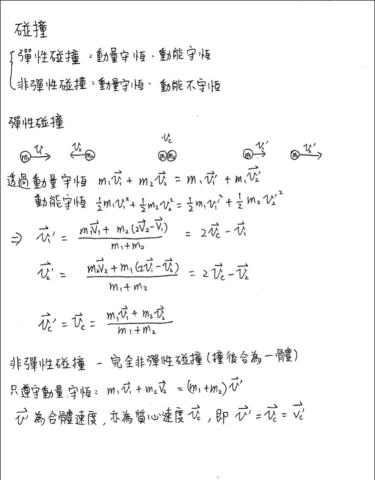 碰撞
彈性碰撞：動量守恆、動能守恆
非彈性碰撞：動量守恆、動能不守恆
彈性碰撞
v⃗c
m₁ v⃗₁ v⃗₂ m₂ m₁m₂ m₁ v⃗₁' m₂ v⃗₂'
透過動量守恆 m₁v⃗₁ + m₂v⃗₂ = m₁v⃗₁' + m₁v⃗₂'
動能守恆 ½m₁v₁² + ½m₂v₂² = ½m₁v₁'² + ½m₂v₂'²
⇒ v⃗₁' = (m₁v⃗₁ + m₂(2v⃗₂-v⃗₁))/(m₁+m₂) = 2v⃗c - v⃗₁
v⃗₂' = (m₂v⃗₂ + m₁(2v⃗₁-v⃗₂))/(m₁+m₂) = 2v⃗c - v⃗₂
v⃗c' = v⃗c = (m₁v⃗₁ + m₂v⃗₂)/(m₁+m₂)
非彈性碰撞 - 完全非彈性碰撞(撞後合為一體)
只遵守動量守恆：m₁v⃗₁ + m₂v⃗₂ = (m₁+m₂)v⃗'
v⃗' 為合體速度，亦為質心速度 v⃗c，即 v⃗' = v⃗c = v⃗c'